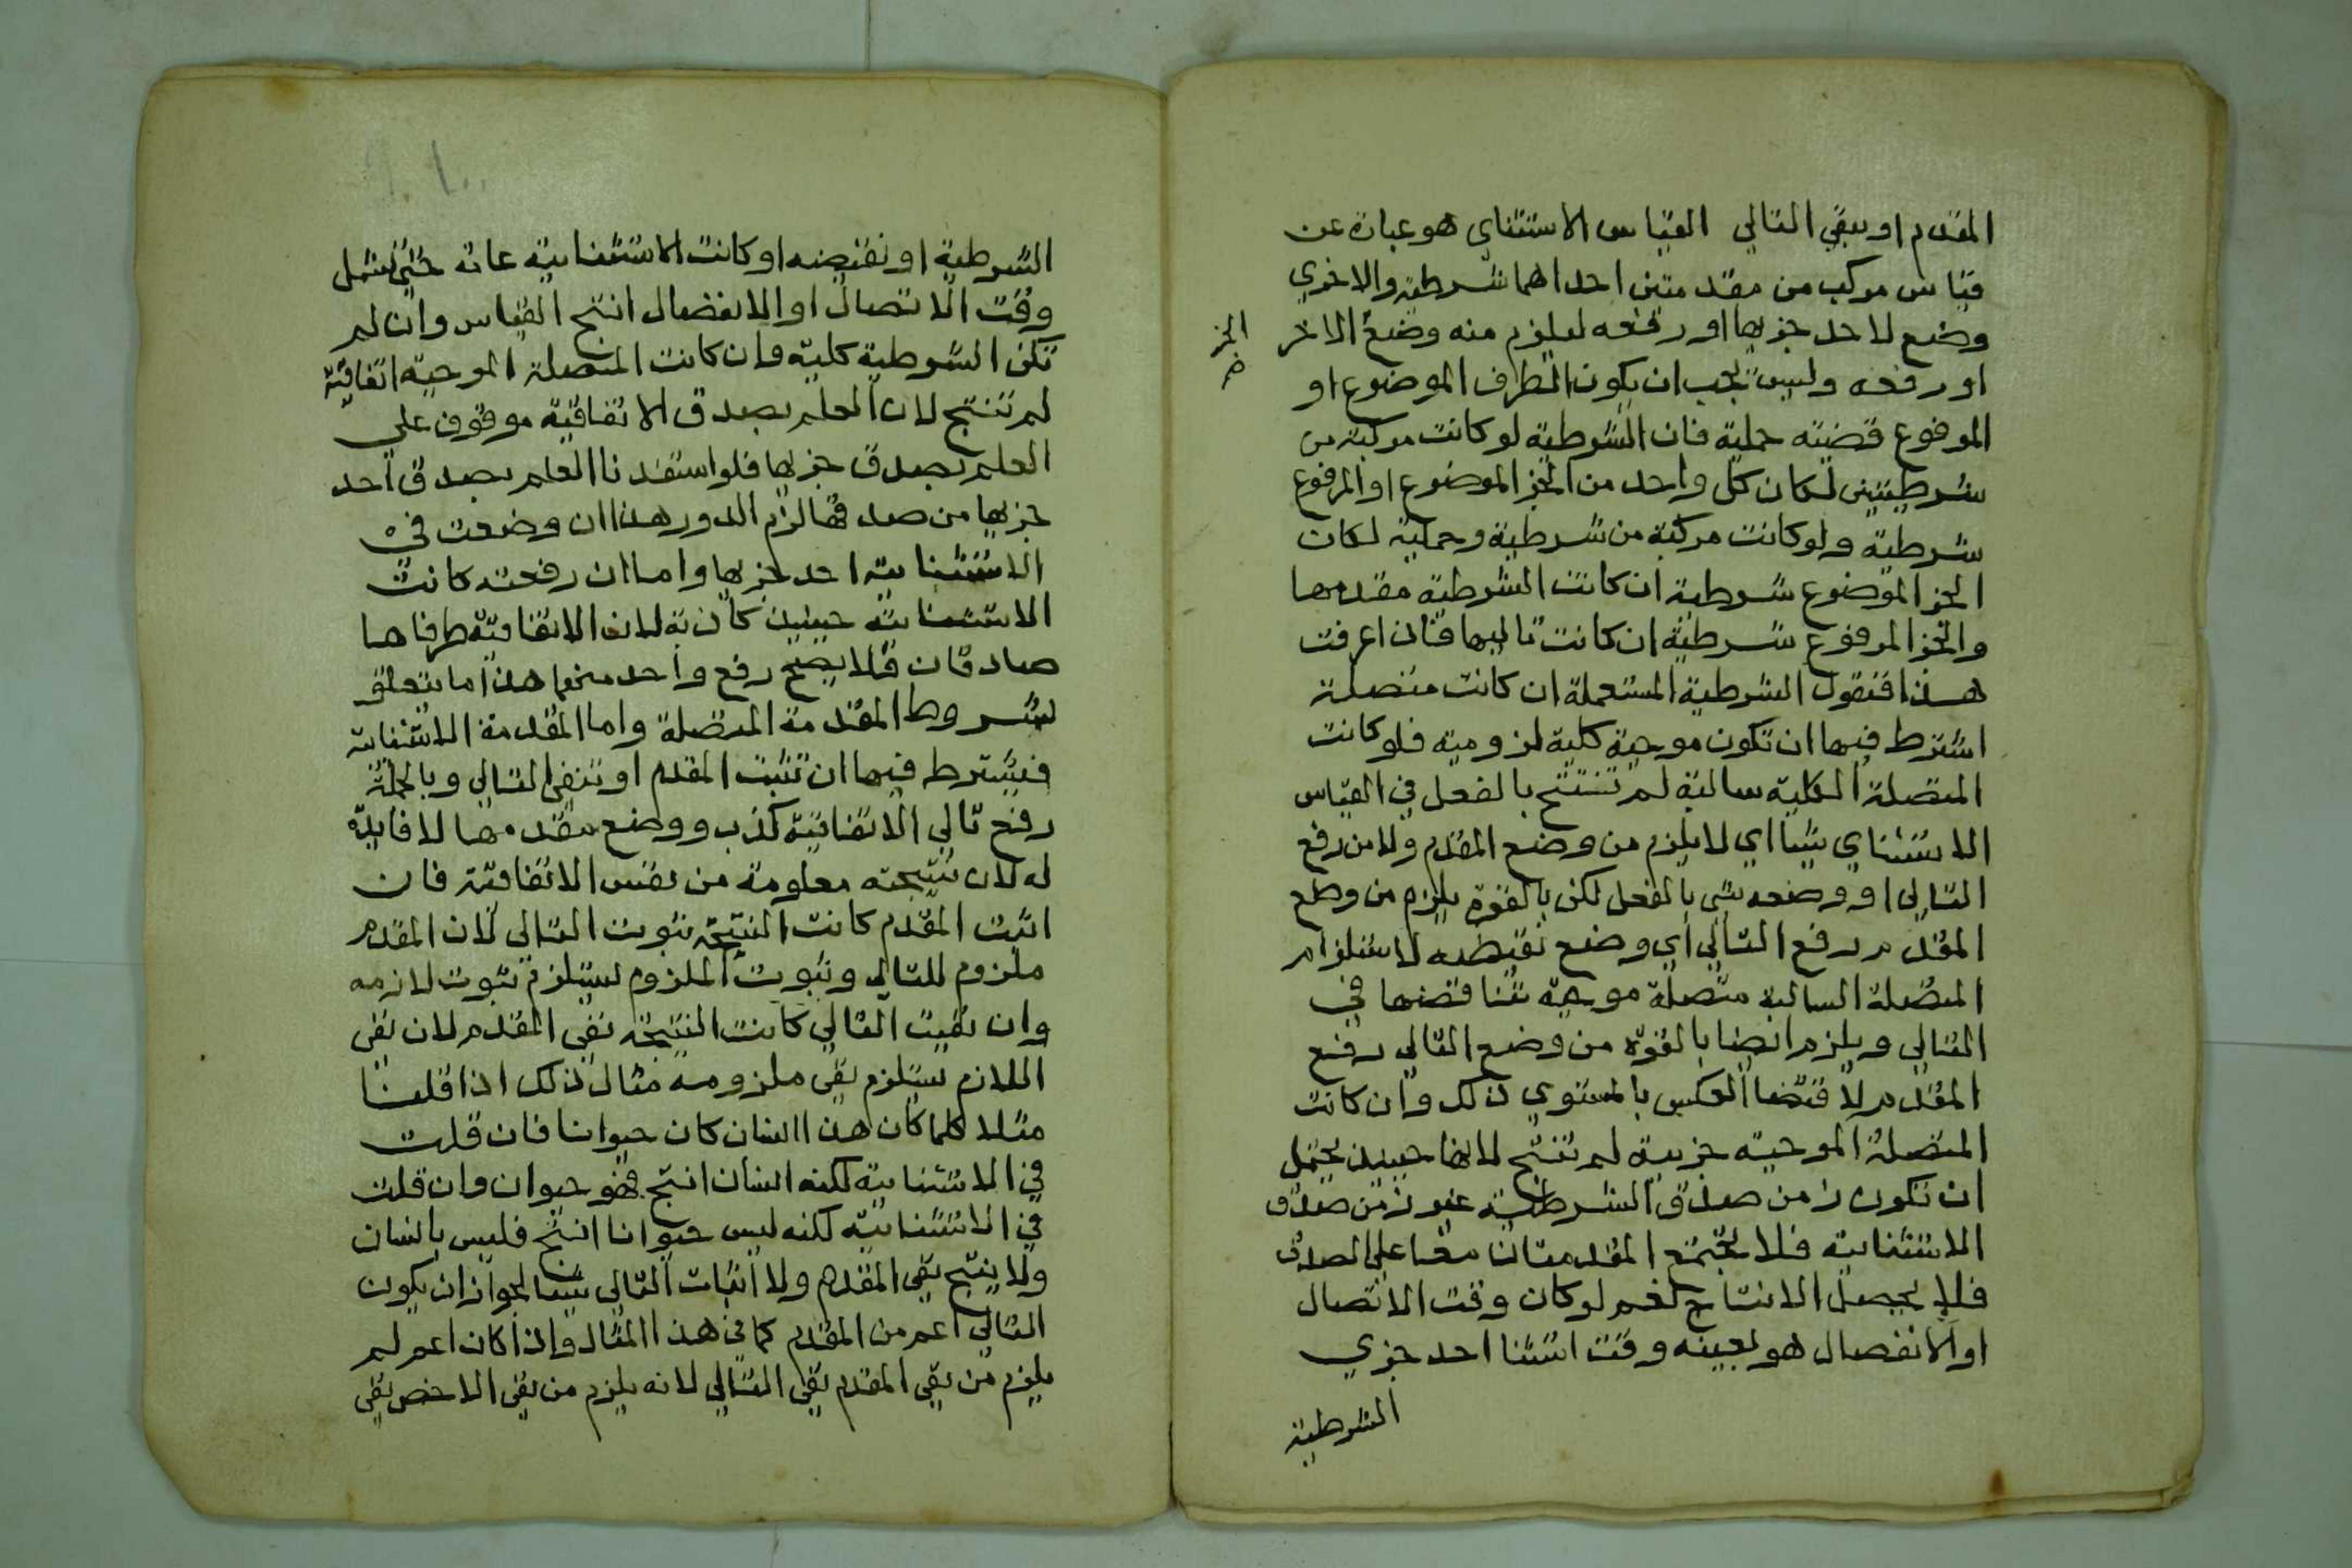 المقدم او ينفي التالي القياس الاستثناي هو عبارة عن
قياس مركب من مقدمتين احداهما شرطية والاخري
وضع لاحد جزيها او رفعه ليلزم منه وضع الاخر
الجز
او رفعه وليس يجب ان يكون الطرف الموضوع او
المرفوع قضية حملية فان الشرطية لو كانت مركبة من
شرطيتين لكان كل واحد من الجز الموضوع او المرفوع
شرطية ولو كانت مركبة من شرطية وحملية لكان
الجز الموضوع شرطية ان كانت الشرطية مقدمها
والجز المرفوع شرطية ان كانت تاليها فاذا عرفت
هذا فنقول الشرطية المستعملة ان كانت متصلة
اشترط فيها ان تكون موجبة كلية لزومية فلو كانت
المتصلة الكلية سالبة لم تنتج بالفعل في القياس
الاستثناي شيا اي لا يلزم من وضع المقدم ولا من رفع
التالي او وضعه شي بالفعل لكن بالقوة يلزم من وضع
المقدم رفع التالي اي وضع نقيضه لاستلزام
المتصلة السالبة متصلة موجبة تناقضها في
التالي ويلزم ايضا بالقوة من وضع التالي رفع
المقدم لاقتضا العكس بالمستوي ذلك وان كانت
المتصلة الموجبة جزيية لم تنتج لانها حينيذ يحتمل
ان تكون زمن صدق الشرطية غير زمن صدق
الاستثنايية فلا يجتمع المقدمتان معا علي الصدق
فلا يحصل الانتاج نعم لو كان وقت الاتصال
او الانفصال هو بعينه وقت استثنا احد جزي
الشرطية
الشرطية او نقيضه او كانت الاستثنايية عامة حتي تشمل
وقت الاتصال او الانفصال انتج القياس وان لم
تكن الشرطية كلية وان كانت المتصلة الموجبة اتفاقية
لم تنتج لان العلم بصدق الاتفاقية موقوف علي
العلم بصدق جزيها فلو استفدنا العلم بصدق احد
جزيها من صدقها لزم الدور هذا ان وضعت في
الاستثنايية احد جزيها واما ان رفعته كانت
الاستثنايية حينيذ كاذبة لان الاتفاقية طرفاها
صادقان فلا يصح رفع واحد منهما هذا ما يتعلق
بشروط المقدمة المتصلة واما المقدمة الاستثنايية
فيشترط فيها ان تثبت المقدم او تنفي التالي وبالجملة
رفع تالي الاتفاقية كذب ووضع مقدمها لا فايدة
له لان نتيجته معلومة من نفس الاتفاقية فان
اثبت المقدم كانت النتيجة ثبوت التالي لان المقدم
ملزوم للتالي وثبوت الملزوم يستلزم ثبوت لازمه
وان نفيت التالي كانت النتيجة نفي المقدم لان نفي
اللازم يستلزم نفي ملزومه مثال ذلك اذا قلنا
مثلا كلما كان هذا انسان كان حيوانا فان قلت
في الاستثنايية لكنه انسان انتج فهو حيوان وان قلت
في الاستثنايية لكنه ليس حيوانا انتج فليس بانسان
ولا ينتج نفي المقدم ولا اثبات التالي شيا لجواز ان يكون
التالي اعم من المقدم كما في هذا المثال واذا كان اعم لم
يلزم من نفي المقدم نفي التالي لانه يلزم من نفي الاخص نفي